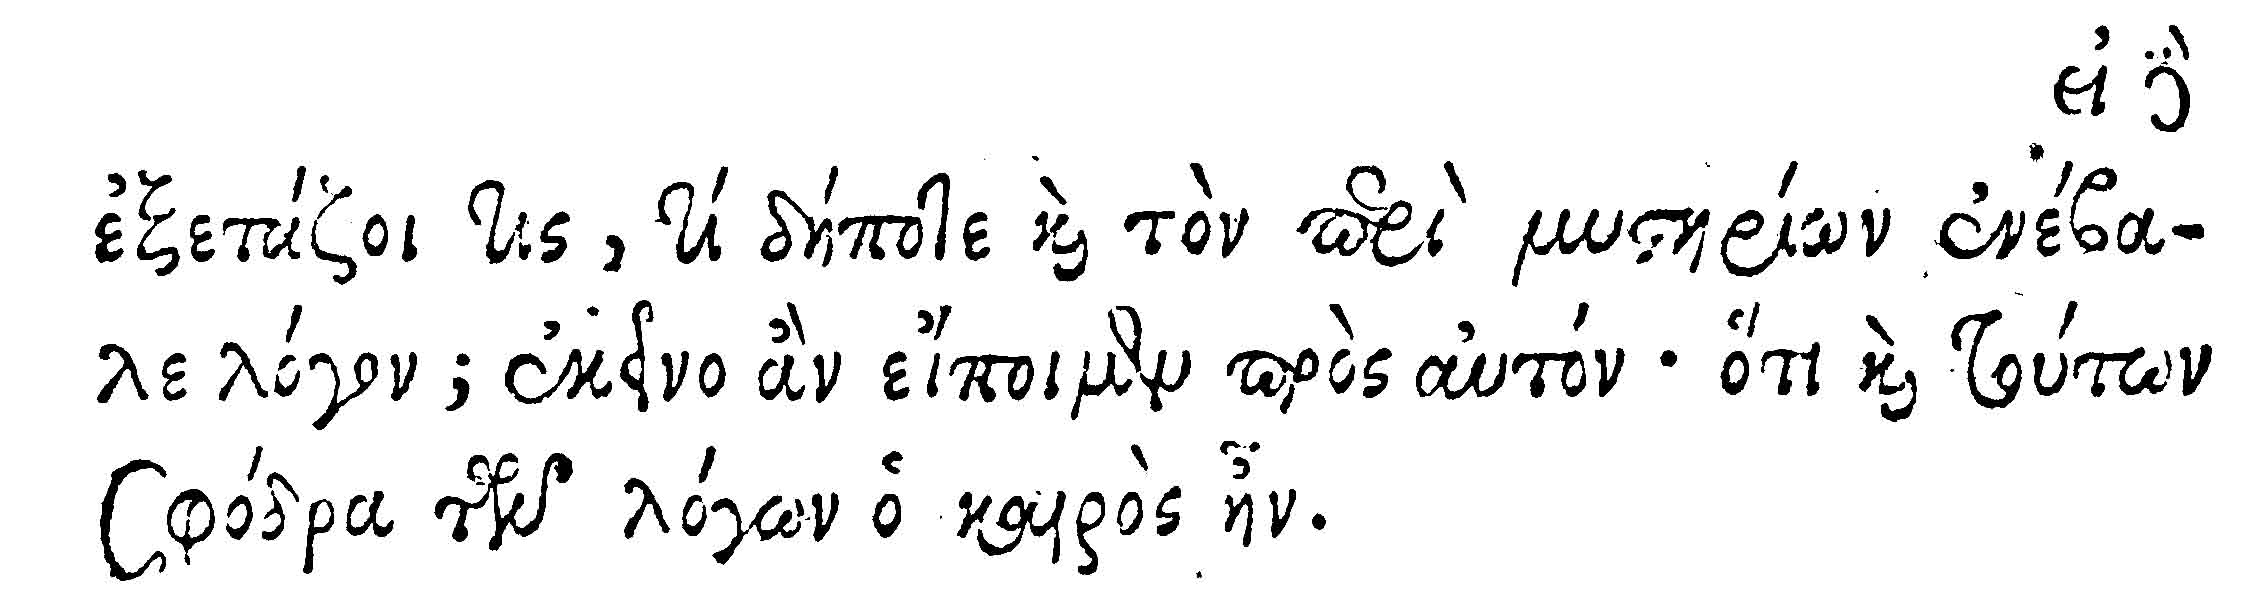 εἰ δὲ
ἐξετάζοι τις, τί δήποτε καὶ τὸν περὶ μυστηρίων ἐνέβα-
λε λόγον; ἐκεῖνο ἂν εἴποιμεν πρὸς αὐτόν· ὅτι καὶ τούτων
σφόδρα τῶν λόγων ὁ καιρὸς ἦν.